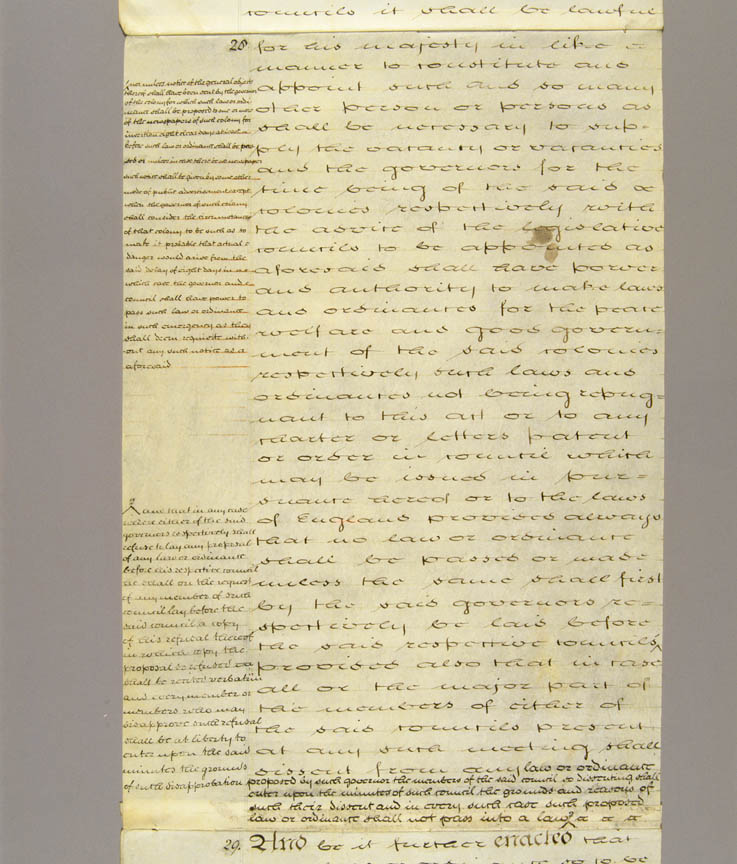 councils it shall be lawful
28 for his majesty in like
manner to constitute and
appoint such and so many
other person or persons as
shall be necessary to sup=
ply the vacancy or vacancies
and the governors for the
time being of the said
colonies respectively with
the advice of the legislative
councils to be appointed as
aforesaid shall have power
and authority to make laws
and ordinances for the peace
welfare and good govern=
ment of the said colonies
respectively such laws and
ordinances not being repug=
nant to this act or to any
charter or letters patent
or order in council which
may be issued in pur=
suance hereof or to the laws
of England provided always
that no law or ordinance
shall be passed or made
unless the same shall first
by the said governors re=
spectively be laid before
the said respective councils
provided also that in case
all or the major part of
the members of either of
the said councils present
at any such meeting shall
dissent from any law or ordinance
proposed by such governor the members of the said council so dissenting shall
enter upon the minutes of such council the grounds and reasons of
such their dissent and in every such case such proposed
law or ordinance shall not pass into a law
nor unless notice of the general objects
thereof shall have been sent by the governor
of the colony for which such law or ordi
nance shall be proposed to one or more
of the newspapers of such colony for
insertion eight clear days at least
before such law or ordinance shall be pro
posed or made in case there be no newspaper
such notice shall be given by some other
mode of public advertisement except
when the governor of such colony
shall consider the circumstances
of that colony to be such as to
make it probable that actual
danger would arise from the
said delay of eight days in
which case the governor and
council shall have power to
pass such law or ordinance
in such emergency as they
shall deem requisite with
out any such notice as
aforesaid
and that in any case
where either of the said
governors respectively shall
refuse to lay any proposal
of any law or ordinance
before his respective council
he shall on the request
of any member of such
council lay before the
said council a copy
of his refusal thereof
in which copy the
proposal so refused
shall be recited verbatim
and every member or
members who may
disapprove such refusal
shall be at liberty to
enter upon the said
minutes the grounds
of such disapprobation
29. And be it further enacted that
to be